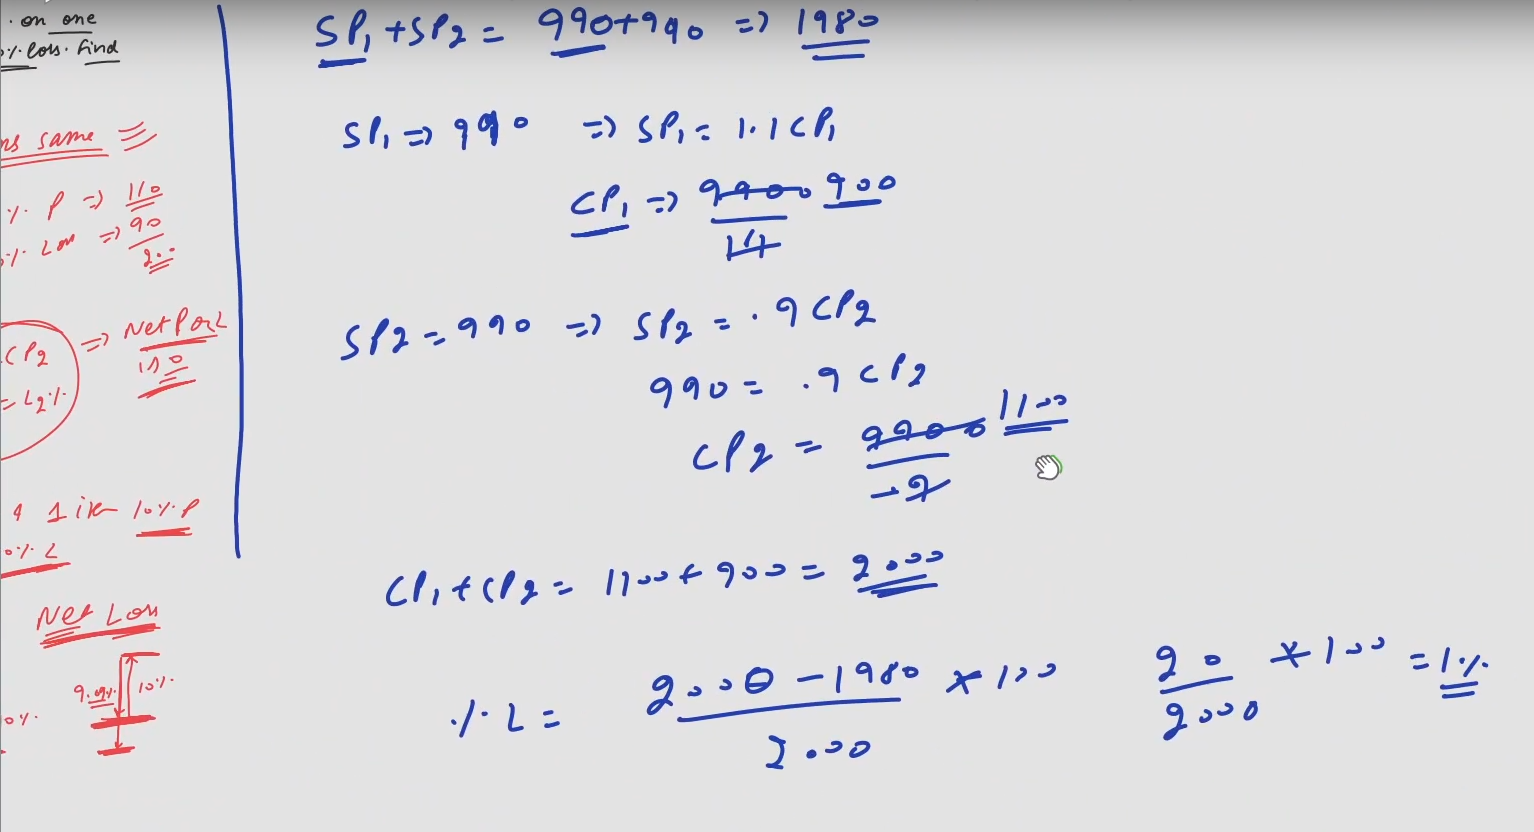 . on one
% loss. Find
ns same
% P => 110
0% Loss => 90
200
CP2 => Net P or L
= L2%
& 1 item 10% P
0% L
Net Loss
9.09% 10%
0%
SP1 + SP2 = 990+990 => 1980
SP1 => 990 => SP1 = 1.1 CP1
CP1 => 9900 900
11
SP2 = 990 => SP2 = .9 CP2
990 = .9 CP2
CP2 = 9900 1100
9
CP1 + CP2 = 1100 + 900 = 2000
% L = 2000 - 1980 * 100 20 * 100 = 1%
2000 2000